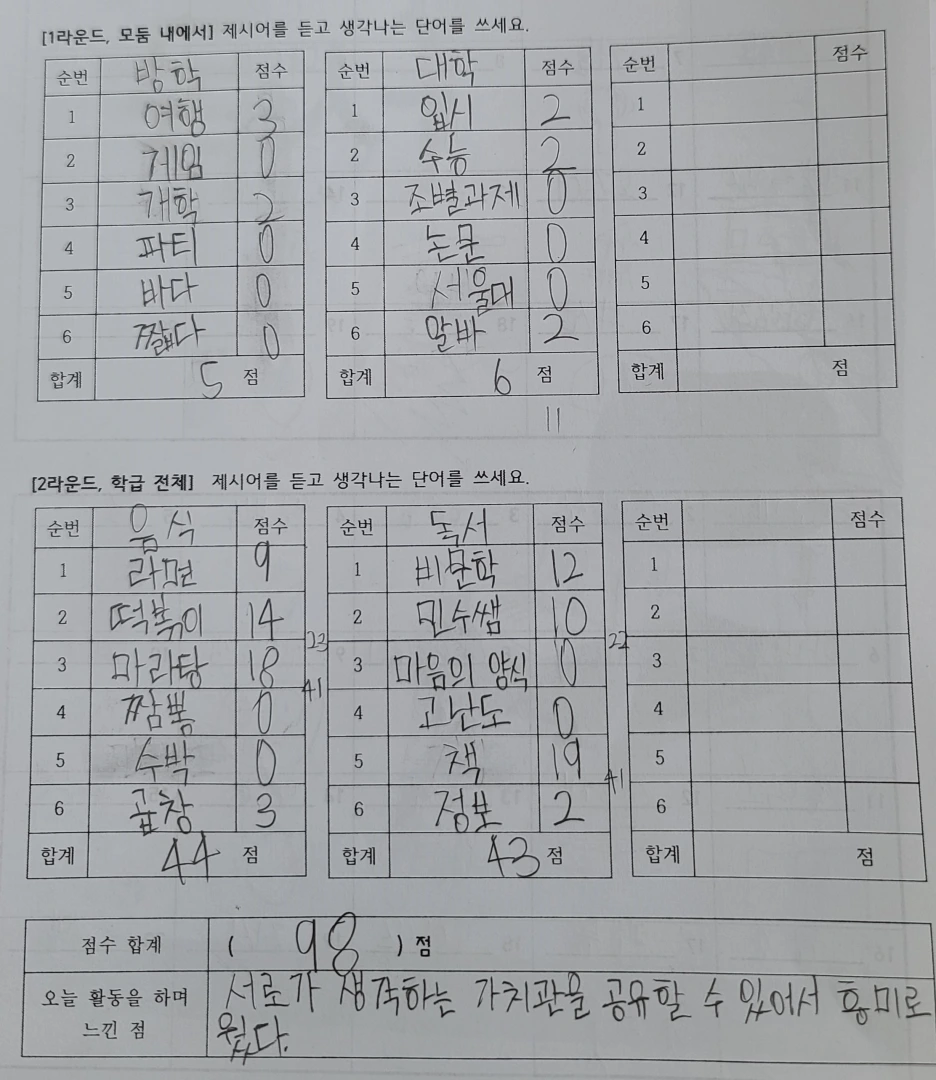 [1라운드, 모둠 내에서] 제시어를 듣고 생각나는 단어를 쓰세요.
순번 방학 점수
1 여행 3
2 게임 0
3 개학 2
4 파티 0
5 바다 0
6 짧다 0
합계 5 점
순번 대학 점수
1 입시 2
2 수능 2
3 조별과제 0
4 논문 0
5 서울대 0
6 알바 2
합계 6 점
11
순번 점수
1
2
3
4
5
6
합계 점
[2라운드, 학급 전체] 제시어를 듣고 생각나는 단어를 쓰세요.
순번 음식 점수
1 라면 9
2 떡볶이 14
23
3 마라탕 18
41
4 짬뽕 0
5 수박 0
6 곱창 3
합계 44 점
순번 독서 점수
1 비문학 12
2 민수쌤 10
22
3 마음의 양식 0
4 고난도 0
5 책 19
41
6 정보 2
합계 43 점
순번 점수
1
2
3
4
5
6
합계 점
점수 합계 ( 98 ) 점
오늘 활동을 하며 느낀 점
서로가 생각하는 가치관을 공유할 수 있어서 흥미로
웠다.